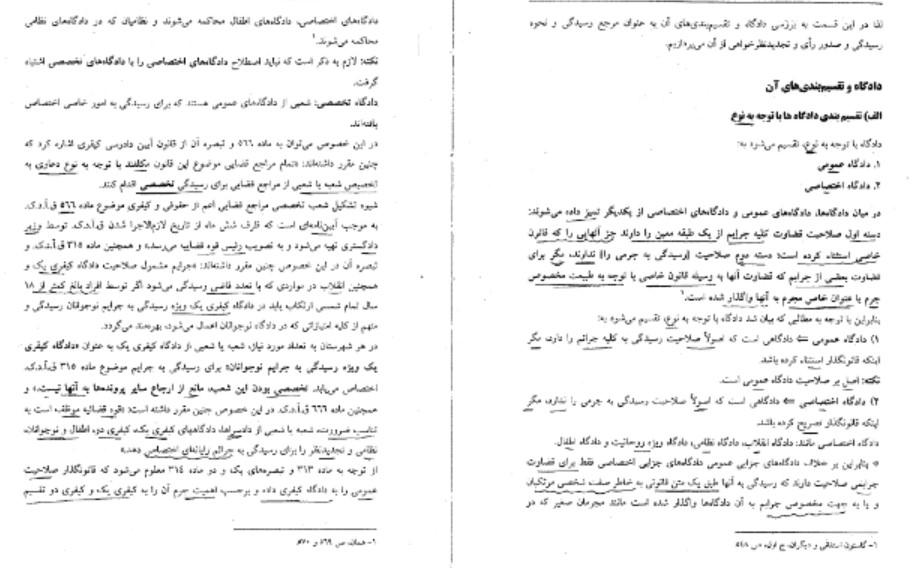 لذا در این قسمت به بررسی دادگاه و تقسیم‌بندی‌های آن به عنوان مرجع رسیدگی و نحوه
رسیدگی و صدور رأی و تجدیدنظرخواهی از آن می‌پردازیم.
دادگاه و تقسیم‌بندی‌های آن
الف) تقسیم بندی دادگاه ها با توجه به نوع
دادگاه با توجه به نوع، تقسیم می‌شود به:
۱. دادگاه عمومی
۲. دادگاه اختصاصی
در میان دادگاه‌ها، دادگاه‌های عمومی و دادگاه‌های اختصاصی از یکدیگر تمیز داده می‌شوند:
دسته اول صلاحیت قضاوت کلیه جرایم از یک طبقه معین را دارند جز آنهایی را که قانون
خاصی استثناء کرده است؛ دسته دوم صلاحیت (رسیدگی به جرمی را) ندارند، مگر برای
قضاوت بعضی از جرایم که قضاوت آنها به وسیله قانون خاصی با توجه به طبیعت مخصوص
جرم یا عنوان خاص مجرم به آنها واگذار شده است.۱
بنابراین با توجه به مطالبی که بیان شد دادگاه با توجه به نوع، تقسیم می‌شود به:
۱) دادگاه عمومی ⇐ دادگاهی است که اصولاً صلاحیت رسیدگی به کلیه جرائم را دارد، مگر
اینکه قانونگذار استثناء کرده باشد.
نکته: اصل بر صلاحیت دادگاه عمومی است.
۲) دادگاه اختصاصی ⇐ دادگاهی است که اصولاً صلاحیت رسیدگی به جرمی را ندارد، مگر
اینکه قانونگذار تصریح کرده باشد.
دادگاه اختصاصی مانند: دادگاه انقلاب، دادگاه نظامی، دادگاه ویژه روحانیت و دادگاه اطفال.
* بنابراین بر خلاف دادگاه‌های جزایی عمومی دادگاه‌های جزایی اختصاصی فقط برای قضاوت
جرایمی صلاحیت دارند که رسیدگی به آنها طبق یک متن قانونی به خاطر صفت شخصی مرتکبان
و یا به جهت مخصوص جرایم به آن دادگاه‌ها واگذار شده است مانند مجرمان صغیر که در
۱- گاستون استفانی و دیگران، ج اول، ص ۵۴۸.
دادگاه‌های اختصاصی، دادگاه‌های اطفال محاکمه می‌شوند و نظامیان که در دادگاه‌های نظامی
محاکمه می‌شوند.۱
نکته: لازم به ذکر است که نباید اصطلاح دادگاه‌های اختصاصی را با دادگاه‌های تخصصی اشتباه
گرفت.
دادگاه تخصصی: شعبی از دادگاه‌های عمومی هستند که برای رسیدگی به امور خاصی اختصاص
یافته‌اند.
در این خصوص می‌توان به ماده ۵۶۶ و تبصره آن از قانون آیین دادرسی کیفری اشاره کرد که
چنین مقرر داشته‌اند: «تمام مراجع قضایی موضوع این قانون مکلفند با توجه به نوع دعاوی به
تخصیص شعبه یا شعبی از مراجع قضایی برای رسیدگی تخصصی اقدام کنند.
شیوه تشکیل شعب تخصصی مراجع قضایی اعم از حقوقی و کیفری موضوع ماده ۵۶۶ ق.آ.د.ک.
به موجب آیین‌نامه‌ای است که ظرف شش ماه از تاریخ لازم‌الاجرا شدن ق.آ.د.ک. توسط وزیر
دادگستری تهیه می‌شود و به تصویب رئیس قوه قضاییه می‌رسد» و همچنین ماده ۳۱۵ ق.آ.د.ک. و
تبصره آن در این خصوص چنین مقرر داشته‌اند: «جرایم مشمول صلاحیت دادگاه کیفری یک و
همچنین انقلاب در مواردی که با تعدد قاضی رسیدگی می‌شود اگر توسط افراد بالغ کمتر از ۱۸
سال تمام شمسی ارتکاب یابد در دادگاه کیفری یک ویژه رسیدگی به جرایم نوجوانان رسیدگی و
متهم از کلیه امتیازاتی که در دادگاه نوجوانان اعمال می‌شود، بهره‌مند می‌گردد.
در هر شهرستان به تعداد مورد نیاز، شعبه یا شعبی از دادگاه کیفری یک به عنوان «دادگاه کیفری
یک ویژه رسیدگی به جرایم نوجوانان» برای رسیدگی به جرایم موضوع ماده ۳۱۵ ق.آ.د.ک.
اختصاص می‌یابد. تخصصی بودن این شعبه، مانع از ارجاع سایر پرونده‌ها به آنها نیست.» و
همچنین ماده ۶۶۶ ق.آ.د.ک. در این خصوص چنین مقرر داشته است: «قوه قضائیه موظف است به
تناسب ضرورت، شعبه یا شعبی از دادسراها، دادگاههای کیفری یک، کیفری دو، اطفال و نوجوانان،
نظامی و تجدیدنظر را برای رسیدگی به جرائم رایانه‌ای اختصاص دهد.»
از توجه به ماده ۳۱۳ و تبصره‌های یک و دو ماده ۳۱۴ معلوم می‌شود که قانونگذار صلاحیت
عمومی را به دادگاه کیفری داده و برحسب اهمیت جرم آن را به کیفری یک و کیفری دو تقسیم
۱- همان، ص ۵۶۹ و ۵۷۰.